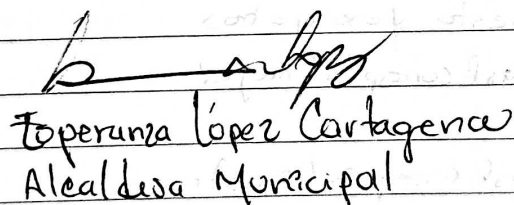 Esperanza López Cartagena
Alcaldesa Municipal